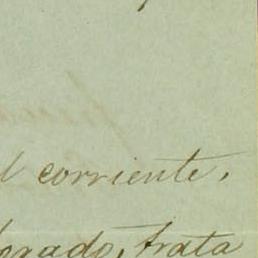 l corriente.
orado, trata